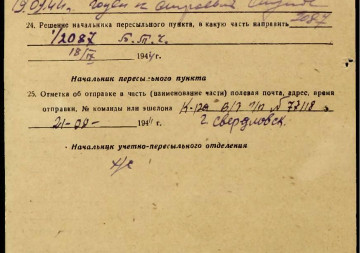 19.09.44. Годен к строевой службе
24. Решение начальника пересыльного пункта, в какую часть направить 2087
1/2087 Б.Т.Ч.
18/IX 194 г.
Начальник пересыльного пункта
25. Отметка об отправке в часть (наименование части) полевая почта, адрес, время
отправки, № команды или эшелона К-ра п/п № 77118
21-09- 194 г. г. Свердловск.
Начальник учетно-пересыльного отделения